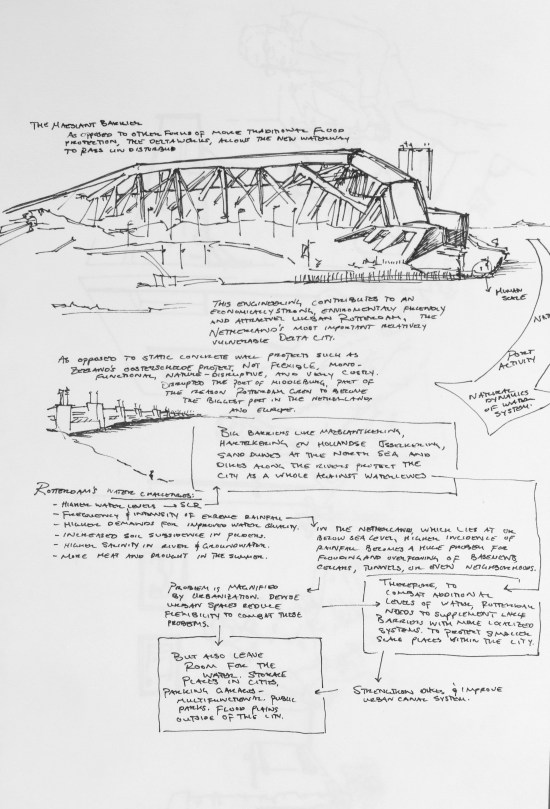 THE MAESLANT BARRIER
AS OPPOSED TO OTHER FORMS OF MORE TRADITIONAL FLOOD
PROTECTION, THE DELTAWORKS, ALLOWS THE NEW WATERWAY
TO PASS UNDISTURBED
HUMAN
SCALE
NAT
PORT
ACTIVITY
NATURAL
DYNAMICS
OF WATER
SYSTEM.
THIS ENGINEERING CONTRIBUTES TO AN
ECONOMICALLY STRONG, ENVIROMENTALY FRIENDLY
AND ATTRACTIVE URBAN ROTTERDAM, THE
NETHERLAND'S MOST IMPORTANT RELATIVELY
VULNERABLE DELTA CITY.
AS OPPOSED TO STATIC CONCRETE WALL PROJECTS SUCH AS
ZEELAND'S PROJECT, NOT FLEXIBLE, MONO-
FUNCTIONAL, NATURE-DISRUPTIVE, AND VERY COSTLY.
DISRUPTED THE PORT OF MIDDELBURG, PART OF
THE REASON ROTTERDAM GREW TO BECOME
THE BIGGEST PORT IN THE NETHERLANDS
AND EUROPE.
BIG BARRIERS LIKE MAESLANTKERING,
HARTELKERING EN HOLLANDSE IJSSELKERING,
SAND DUNES AT THE NORTH SEA AND
DIKES ALONG THE RIVERS PROTECT THE
CITY AS A WHOLE AGAINST WATERLEVELS
ROTTERDAM'S WATER CHALLENGES:
- HIGHER WATER LEVELS → SLR
- FREQUENCY & INTENSITY OF EXREME RAINFALL
- HIGHER DEMANDS FOR IMPROVED WATER QUALITY.
- INCREASED SOIL SUBSIDENCE IN POLDERS.
- HIGHER SALINITY IN RIVER & GROUNDWATER.
- MORE HEAT AND DROUGHT IN THE SUMMER.
IN THE NETHERLANDS, WHICH LIES AT OR
BELOW SEA LEVEL, HIGHER INCIDENCE OF
RAINFALL BECOMES A HUGE PROBLEM FOR
FLOODING AND OVERFLOWING OF BASEMENTS,
CELLARS, TUNNELS, OR EVEN NEIGHBORHOODS.
PROBLEM IS MAGNIFIED
BY URBANIZATION. DENSE
URBAN SPACES REDUCE
FLEXIBILITY TO COMBAT THESE
PROBLEMS.
THEREFORE, TO
COMBAT ADDITIONAL
LEVELS OF WATER, ROTTERDAM
NEEDS TO SUPPLEMENT LARGE
BARRIERS WITH MORE LOCALIZED
SYSTEMS. TO PROTECT SMALLER
SCALE PLACES WITHIN THE CITY.
BUT ALSO LEAVE
ROOM FOR THE
WATER. STORAGE
PLACES IN CITIES,
PARKING GARAGES -
MULTIFUNCTIONAL. PUBLIC
PARKS. FLOOD PLAINS
OUTSIDE OF THE CITY.
STRENGTHEN DIKES & IMPROVE
URBAN CANAL SYSTEM.